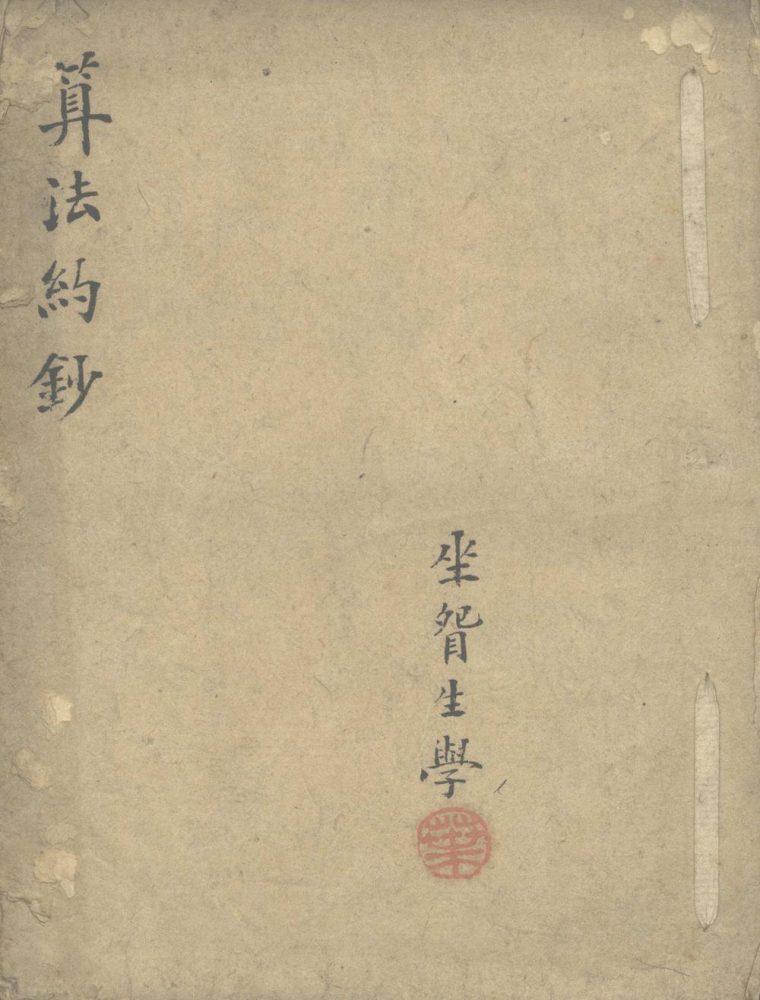 算法約鈔
坐眢生學